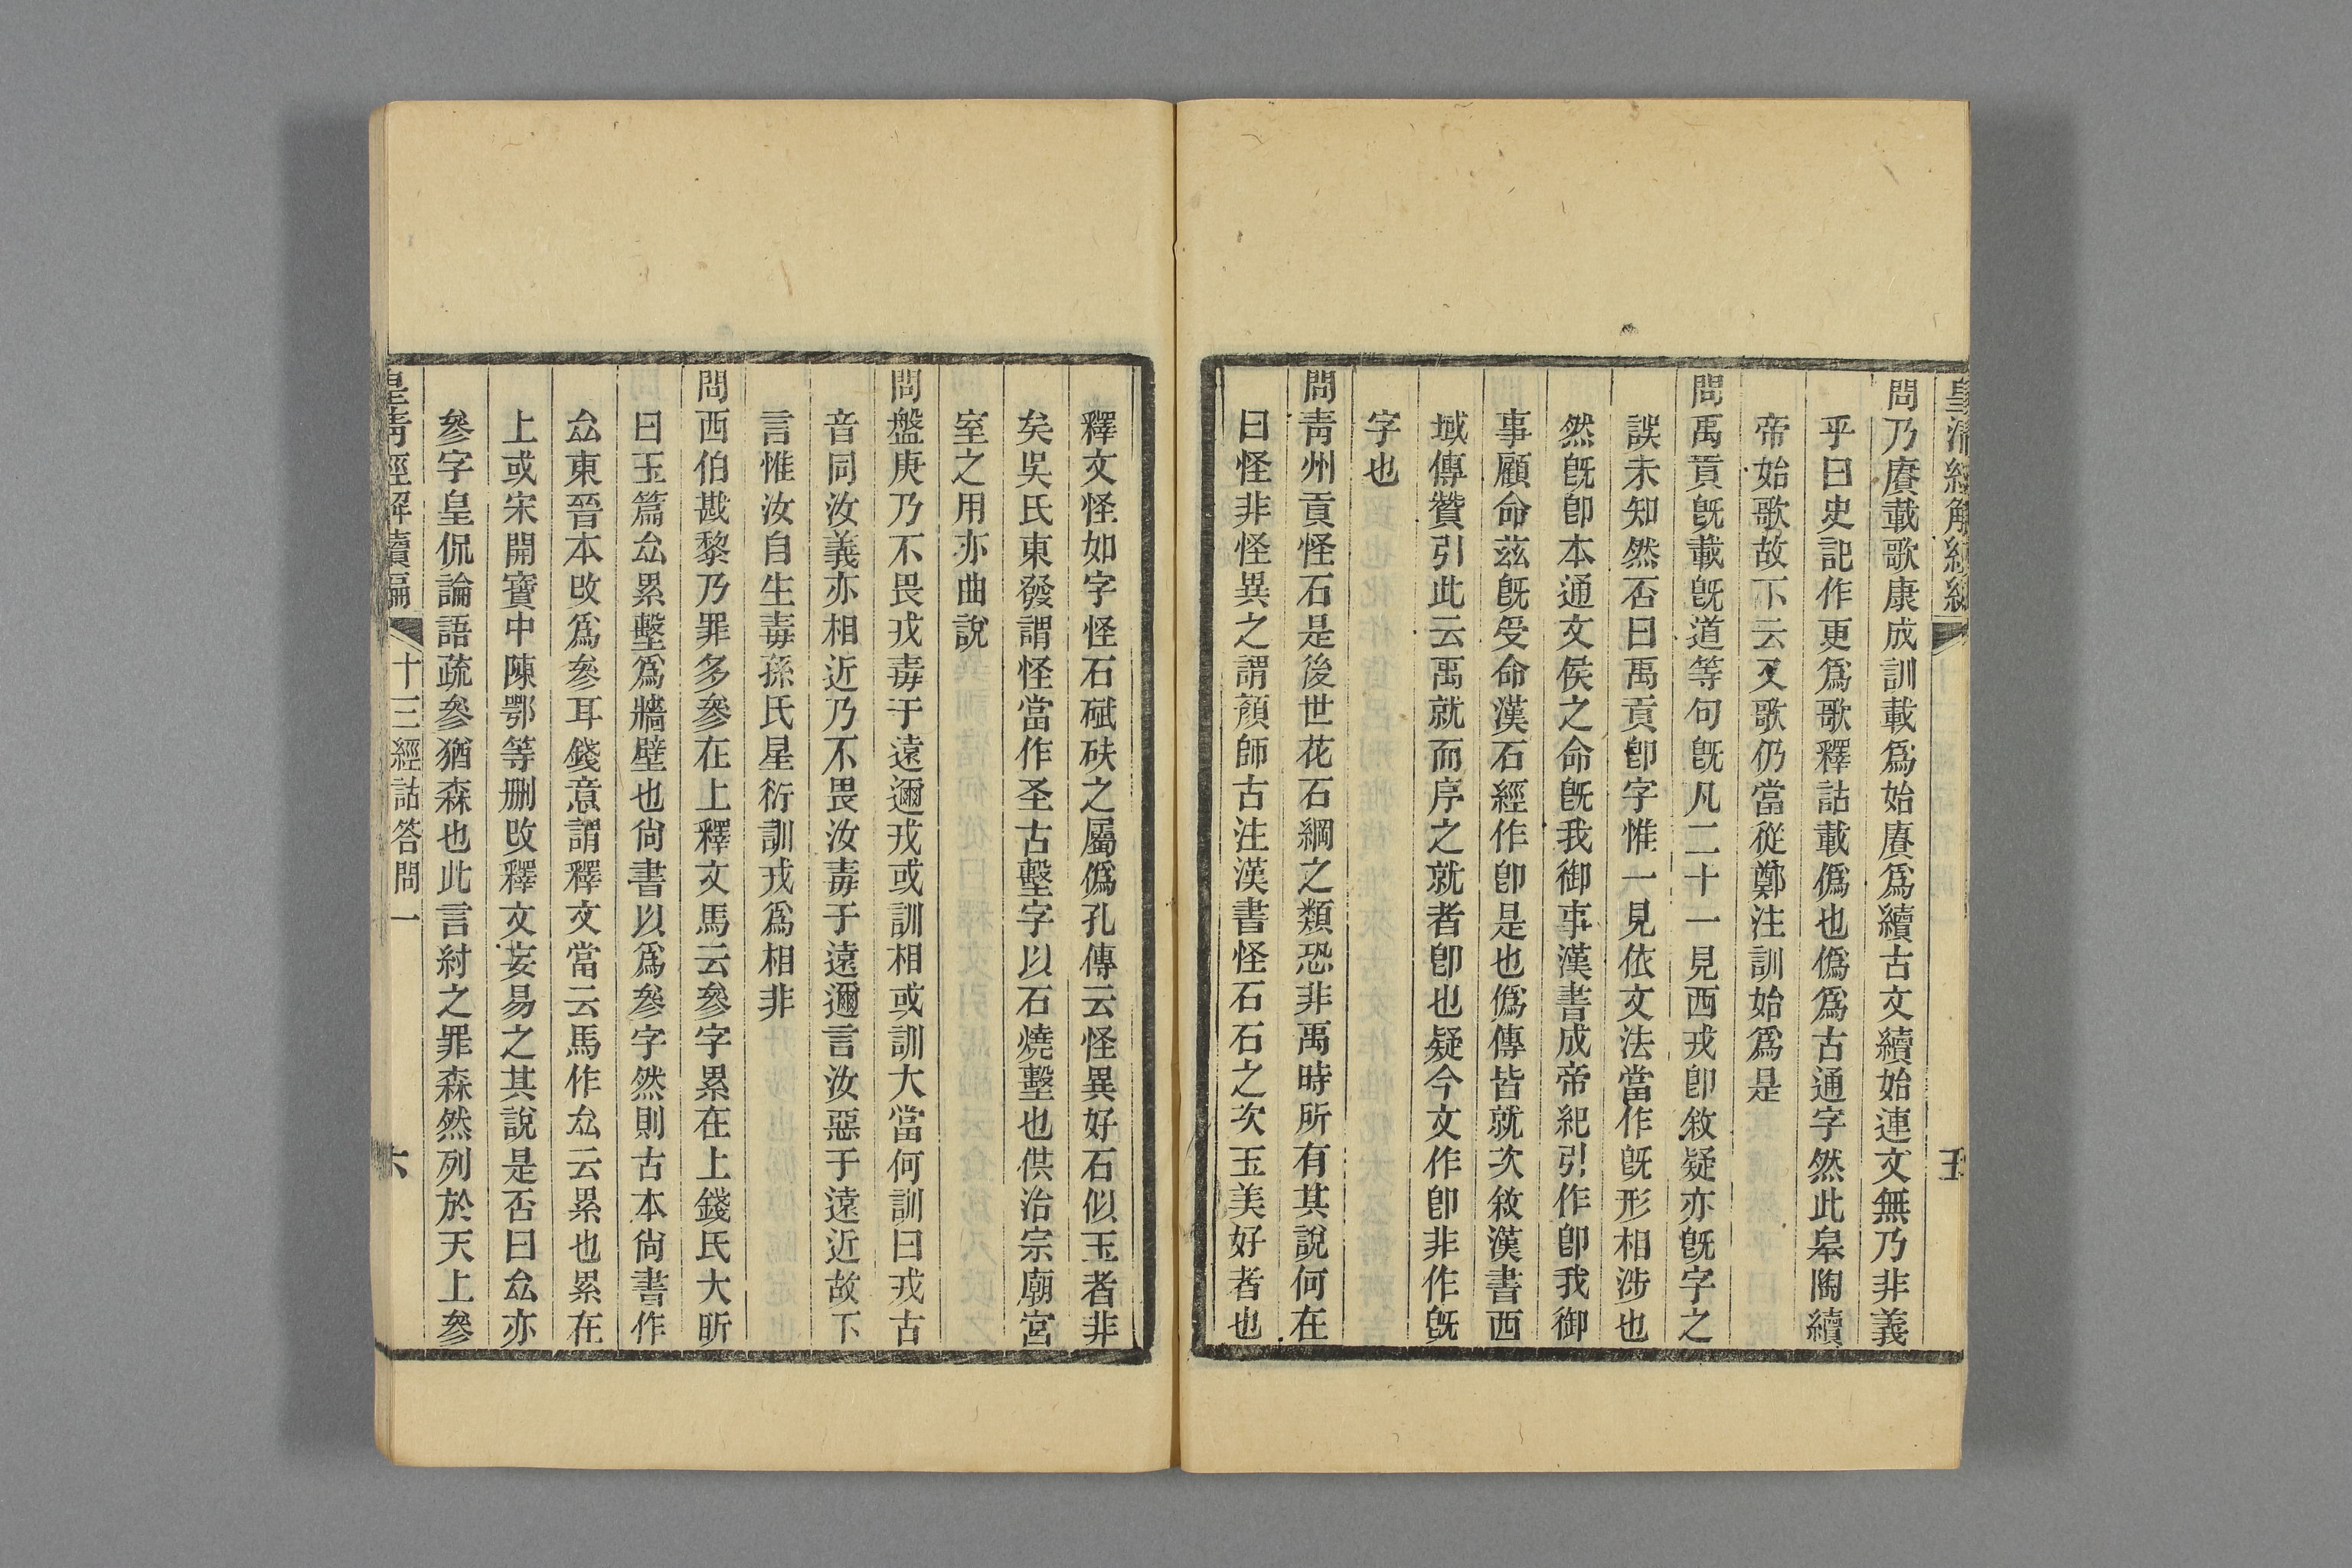 皇清經解續編
五
問乃賡載歌康成訓載爲始賡爲續古文續始連文無乃非義
乎曰史記作更爲歌釋詁載僞也僞爲古通字然此皋陶續
帝始歌故下云又歌仍當從鄭注訓始爲是
問禹貢旣載旣道等句旣凡二十一見西戎卽敘疑亦旣字之
誤未知然否曰禹貢卽字惟一見依文法當作旣形相涉也
然旣卽本通文侯之命旣我御事漢書成帝紀引作卽我御
事顧命茲旣受命漢石經作卽是也僞傳皆就次敘漢書西
域傳贊引此云禹就而序之就者卽也疑今文作卽非作旣
字也
問青州貢怪石是後世花石綱之類恐非禹時所有其說何在
曰怪非怪異之謂顏師古注漢書怪石石之次玉美好者也
釋文怪如字怪石碔砆之屬僞孔傳云怪異好石似玉者非
矣吳氏東發謂怪當作圣古墼字以石燒墼也供治宗廟宮
室之用亦曲說
問盤庚乃不畏戎毒于遠邇戎或訓相或訓大當何訓曰戎古
音同汝義亦相近乃不畏汝毒于遠邇言汝惡于遠近故下
言惟汝自生毒孫氏星衍訓戎爲相非
問西伯戡黎乃罪多參在上釋文馬云參字累在上錢氏大昕
曰玉篇厽累墼爲牆壁也尙書以爲參字然則古本尙書作
厽東晉本改爲參耳錢意謂釋文當云馬作厽云累也累在
上或宋開寶中陳鄂等刪改釋文妄易之其說是否曰厽亦
參字皇侃論語疏參猶森也此言紂之罪森然列於天上參
皇清經解續編
十三經詁答問一
六